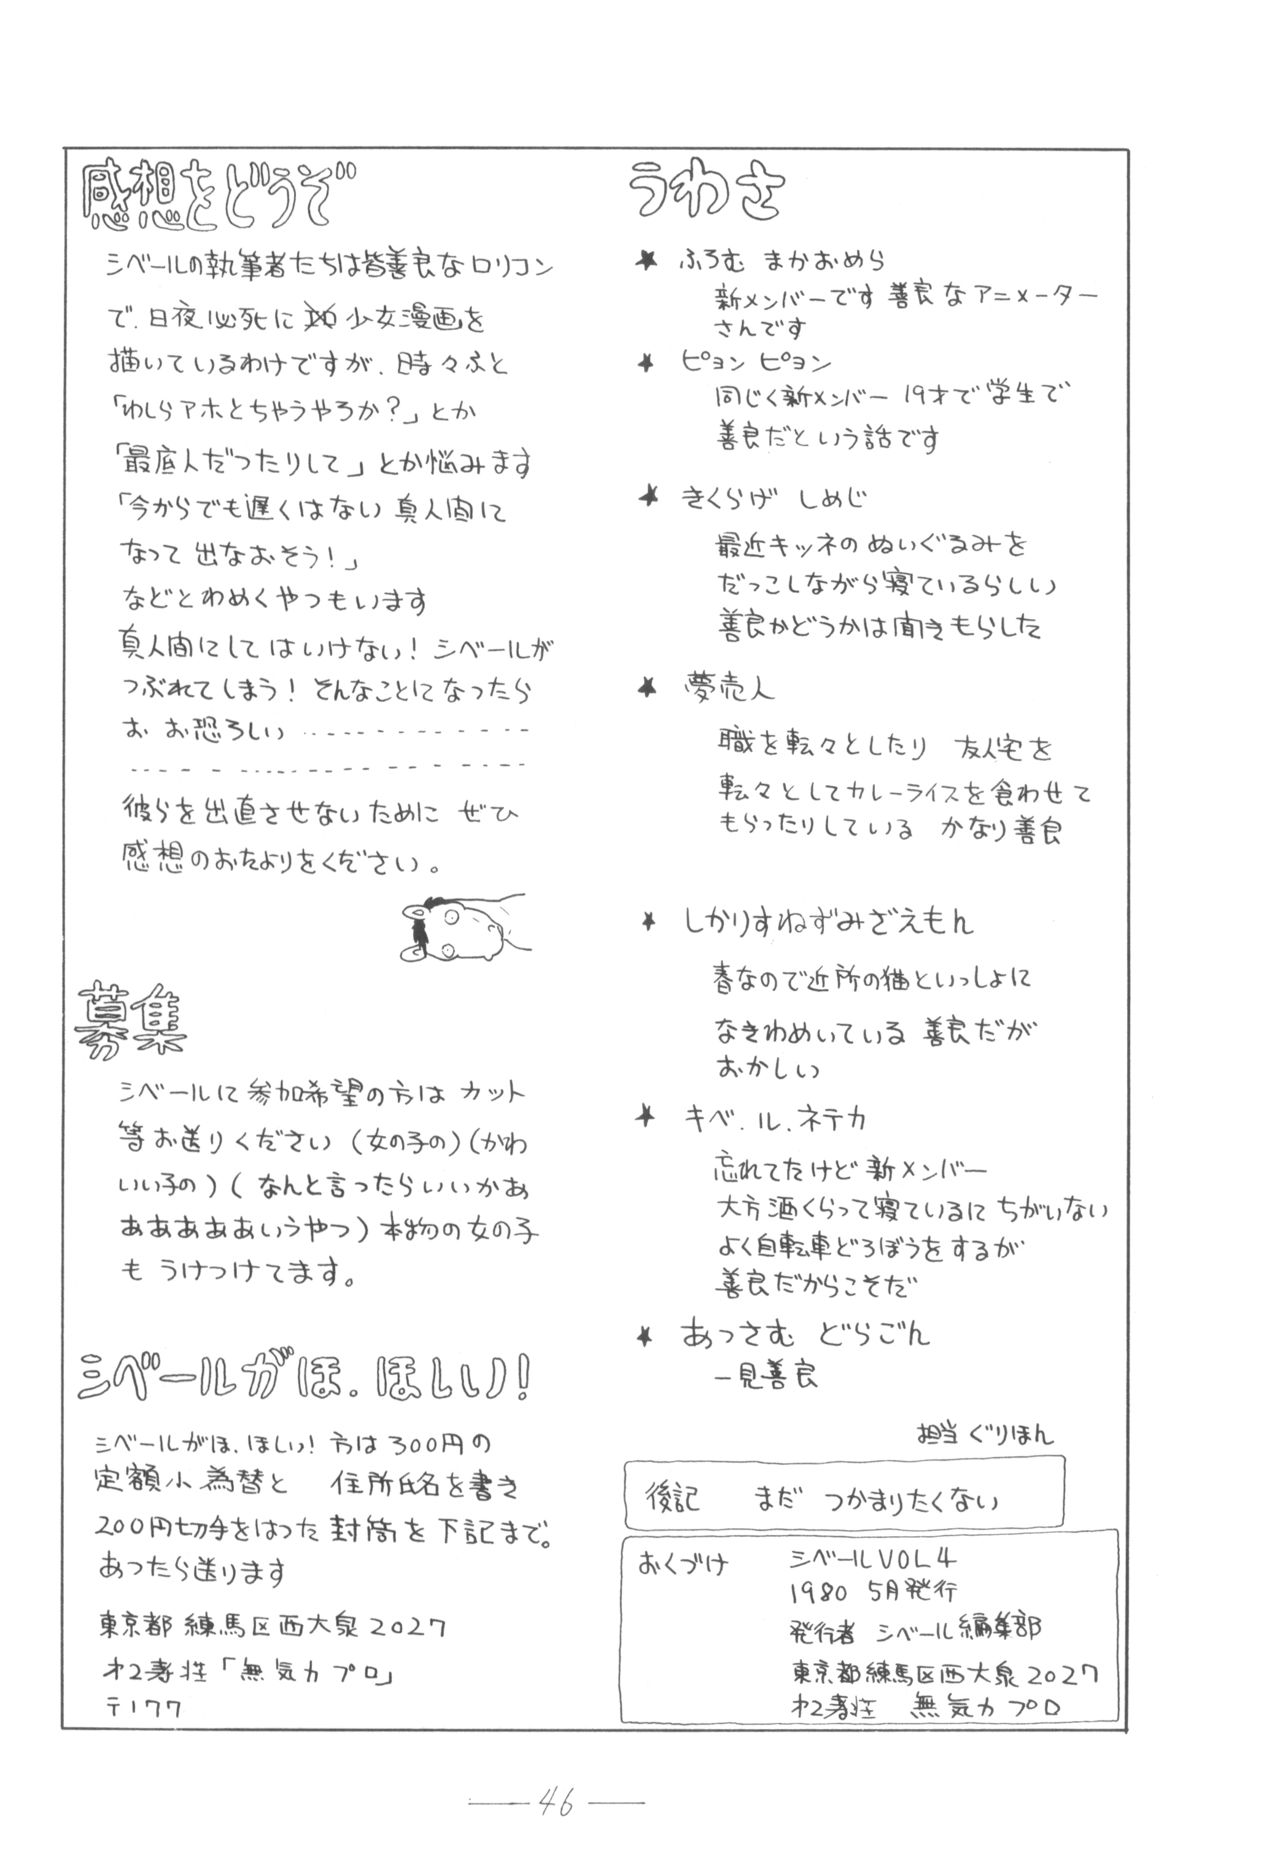 感想をどうぞ
シベールの執筆者たちは皆善良なロリコン
で、日夜必死に少女漫画を
描いているわけですが、時々ふと
「わしらアホとちゃうやろか？」とか
「最底人だったりして」とか悩みます
「今からでも遅くはない 真人間に
なって 出なおそう！」
などとわめくやつもいます
真人間にしてはいけない！シベールが
つぶれてしまう！そんなことになったら
お お恐ろしい - - - - - - - - - - - -
- - - - - - - - - - - - - -
彼らを出直させないために ぜひ
感想のおたよりをください。
募集
シベールに参加希望の方は カット
等お送りください（女の子の）（かわ
いい子の）（なんと言ったらいいかあ
あああああいうやつ）本物の女の子
も うけつけてます。
シベールがほ、ほしい！
シベールがほ、ほしい！方は300円の
定額小為替と 住所氏名を書き
200円切手をはった封筒を下記まで。
あったら送ります
東京都練馬区西大泉2027
才2寿荘「無気力プロ」
〒177
うわさ
★ ふろむ まかおめら
新メンバーです 善良なアニメーター
さんです
★ ピョン ピョン
同じく新メンバー 19才で学生で
善良だという話です
★ きくらげ しめじ
最近キツネのぬいぐるみを
だっこしながら寝ているらしい
善良かどうかは聞きもらした
★ 夢売人
職を転々としたり 友人宅を
転々としてカレーライスを食わせて
もらったりしている かなり善良
★ しかりすねずみざえもん
春なので近所の猫といっしょに
なきわめいている 善良だが
おかしい
★ キベ.ル.ネテカ
忘れてたけど 新メンバー
大方酒くらって寝ているにちがいない
よく自転車どろぼうをするが
善良だからこそだ
★ あっさむ どらごん
一見善良
担当 ぐりほん
後記 まだ つかまりたくない
おくづけ シベールVOL4
1980 5月発行
発行者 シベール編集部
東京都練馬区西大泉2027
才2寿荘 無気力プロ
46